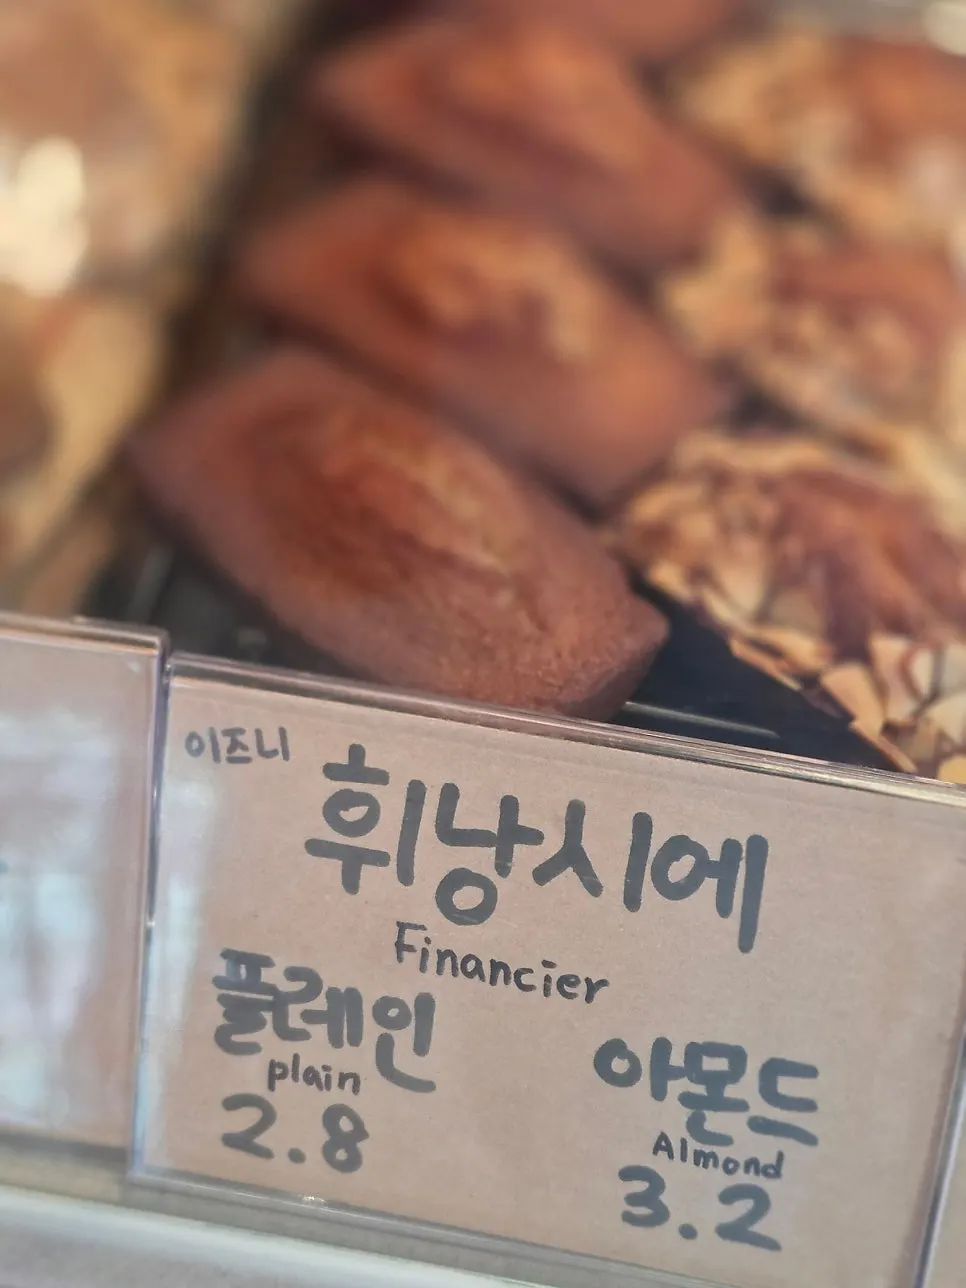 이즈니
휘낭시에
Financier
플레인
plain
2.8
아몬드
Almond
3.2